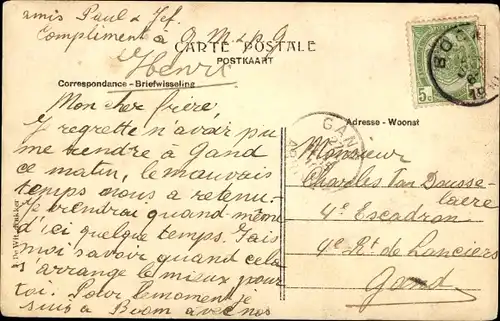 amis Paul & Jef.
Compliment à G M & p G
Henri
CARTE POSTALE
POSTKAART
Correspondance - Briefwisseling
Mon cher frère
Je regrette n'avoir pu
me rendre à Gand
ce matin, le mauvais
temps nous a retenu.
Je viendrai quand-même
d'ici quelque temps. Fais
moi savoir quand cela
s'arrange le mieux pour
toi. Pour le moment je
suis à Boom avec nos
Adresse - Woonst
Monsieur
Charles Van Dousse-
laere
4e Escadron
4e Rt de Lanciers
Gand
5c
BOOM
GAN